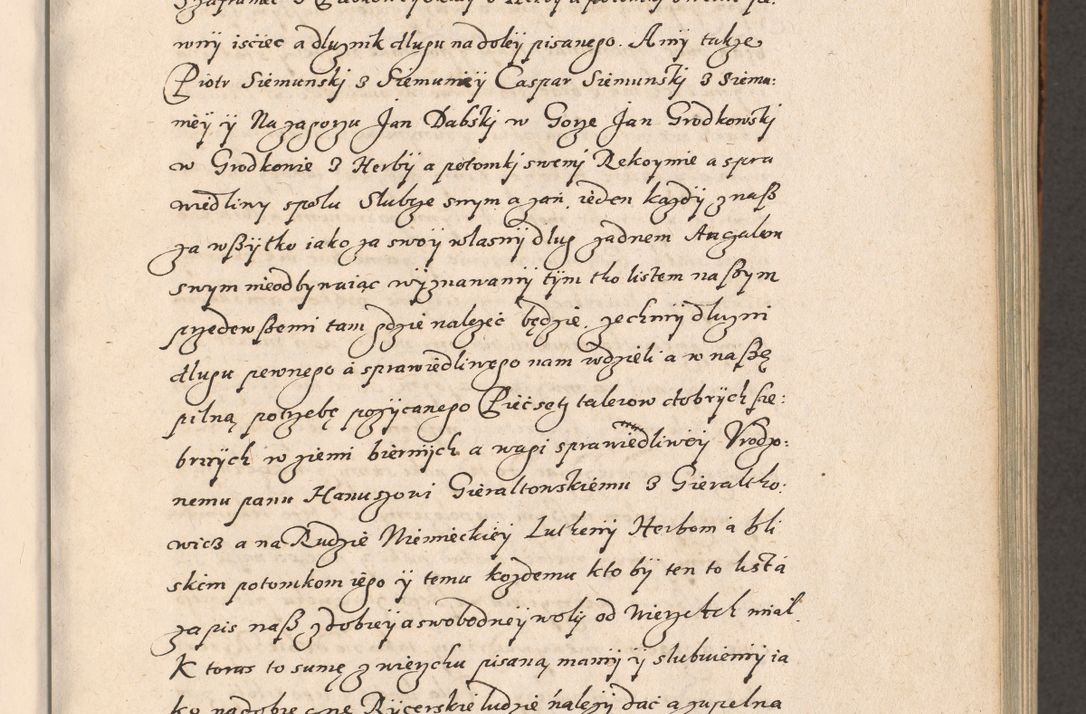 wny iściec a dlużnik dlugu na doléy pisanego. A my także
Piotr Siemunskj z Siemuniey Caspar Siemunskj z Siemu:
niéy ÿ Na zagorzu Jan Dabskj w Gorze Jan Grodkowskj
w Grodkowie z Herbÿ a potomkj swemj Rekoymie a spra
wiedliwy społu Slubcze swym a zań, ieden każdÿ z nasz
za wszÿtko iako za swoÿ wlasnÿ dlug żadnem Angalem
swym nieodbÿwaiąc wÿznawamÿ tÿm tho listem naszym
przedewszemi tam gdzie należeć będzie. żechmÿ dlużni
dlugu pewnego á sprawiedliwego nam wdzieli a w naszę
pilną potrzebę pożÿcanego Pieć seth talerow dobrÿch sre:
brnÿch w ziemi biernÿch a wagi sprawiedliwéÿ Vrodzo:
nemu panu Hanuszowi Gieraltowskiému z Gieraltho:
wicz a na Rudzie Niemieckiéÿ Luthenÿ Herbom á bli
skim potomkom iégo ÿ temu kożdemu kto bÿ ten to list á
zapis nasz z dobréÿ a swobodnéÿ wolÿ od Nierzekch mial.
K toras to sumę z wierzchu pisaną mamÿ ÿ slubuiemÿ ia
ko na dobre cne Rÿcerskie ludzie náleżÿ dać a zupelna